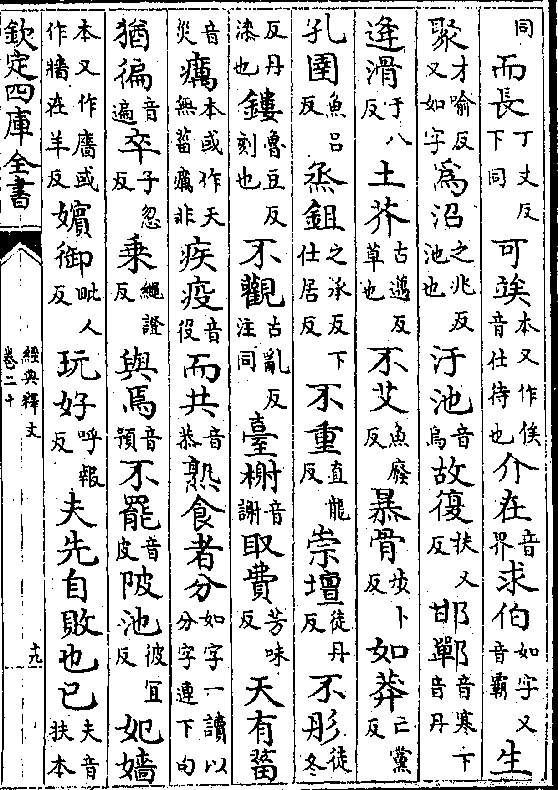 同而長丁丈反下同可竢本又作俟音仕待也介在音界求伯如字又音霸生
聚才喻反又如字為沼之兆反池也汙池音烏故復扶又反邯鄲音寒下音丹
逄滑于八反土芥古邁反草也不艾魚廢反暴骨步卜反如莽亡黨反
孔圉魚呂反烝鉏之承反下仕居反不重直龍反崇壇徒丹反不彤徒冬
反丹漆也鏤魯豆反刻也不觀古亂反注同臺榭音謝取費芳味反天有菑
音災癘本或作天無菑癘非疾疫音役而共音恭熟食者分如字一讀以分字連下句
猶徧音遍卒子忽反乗繩證反與焉音預不罷音皮陂池彼宜反妃嬙
本又作廧或作牆在羊反嬪御毗人反玩好呼報反夫先自敗也已夫音扶本
欽定四庫全書
經典釋文
卷二十
十九